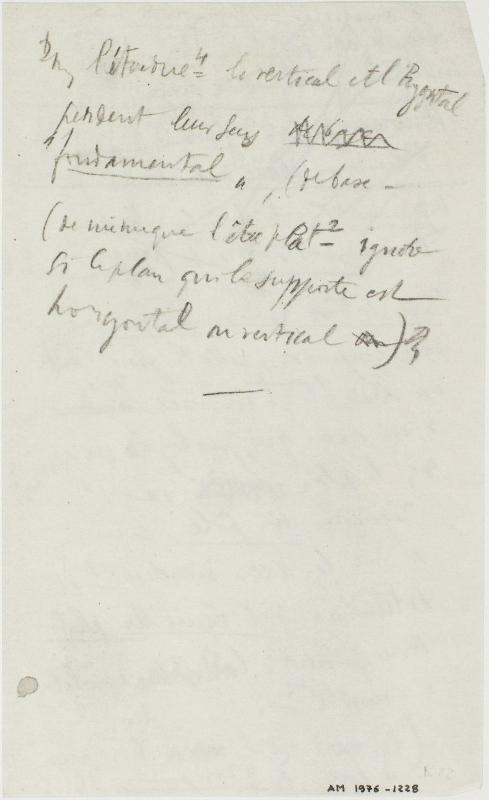 Dans l'étendue 4 le vertical et l'horizontal
perdent leur sens
"fondamental", (de base –
(de même que l'être plat 2 ignore
si le plan qui le supporte est
horizontal ou vertical)
AM 1976-1228